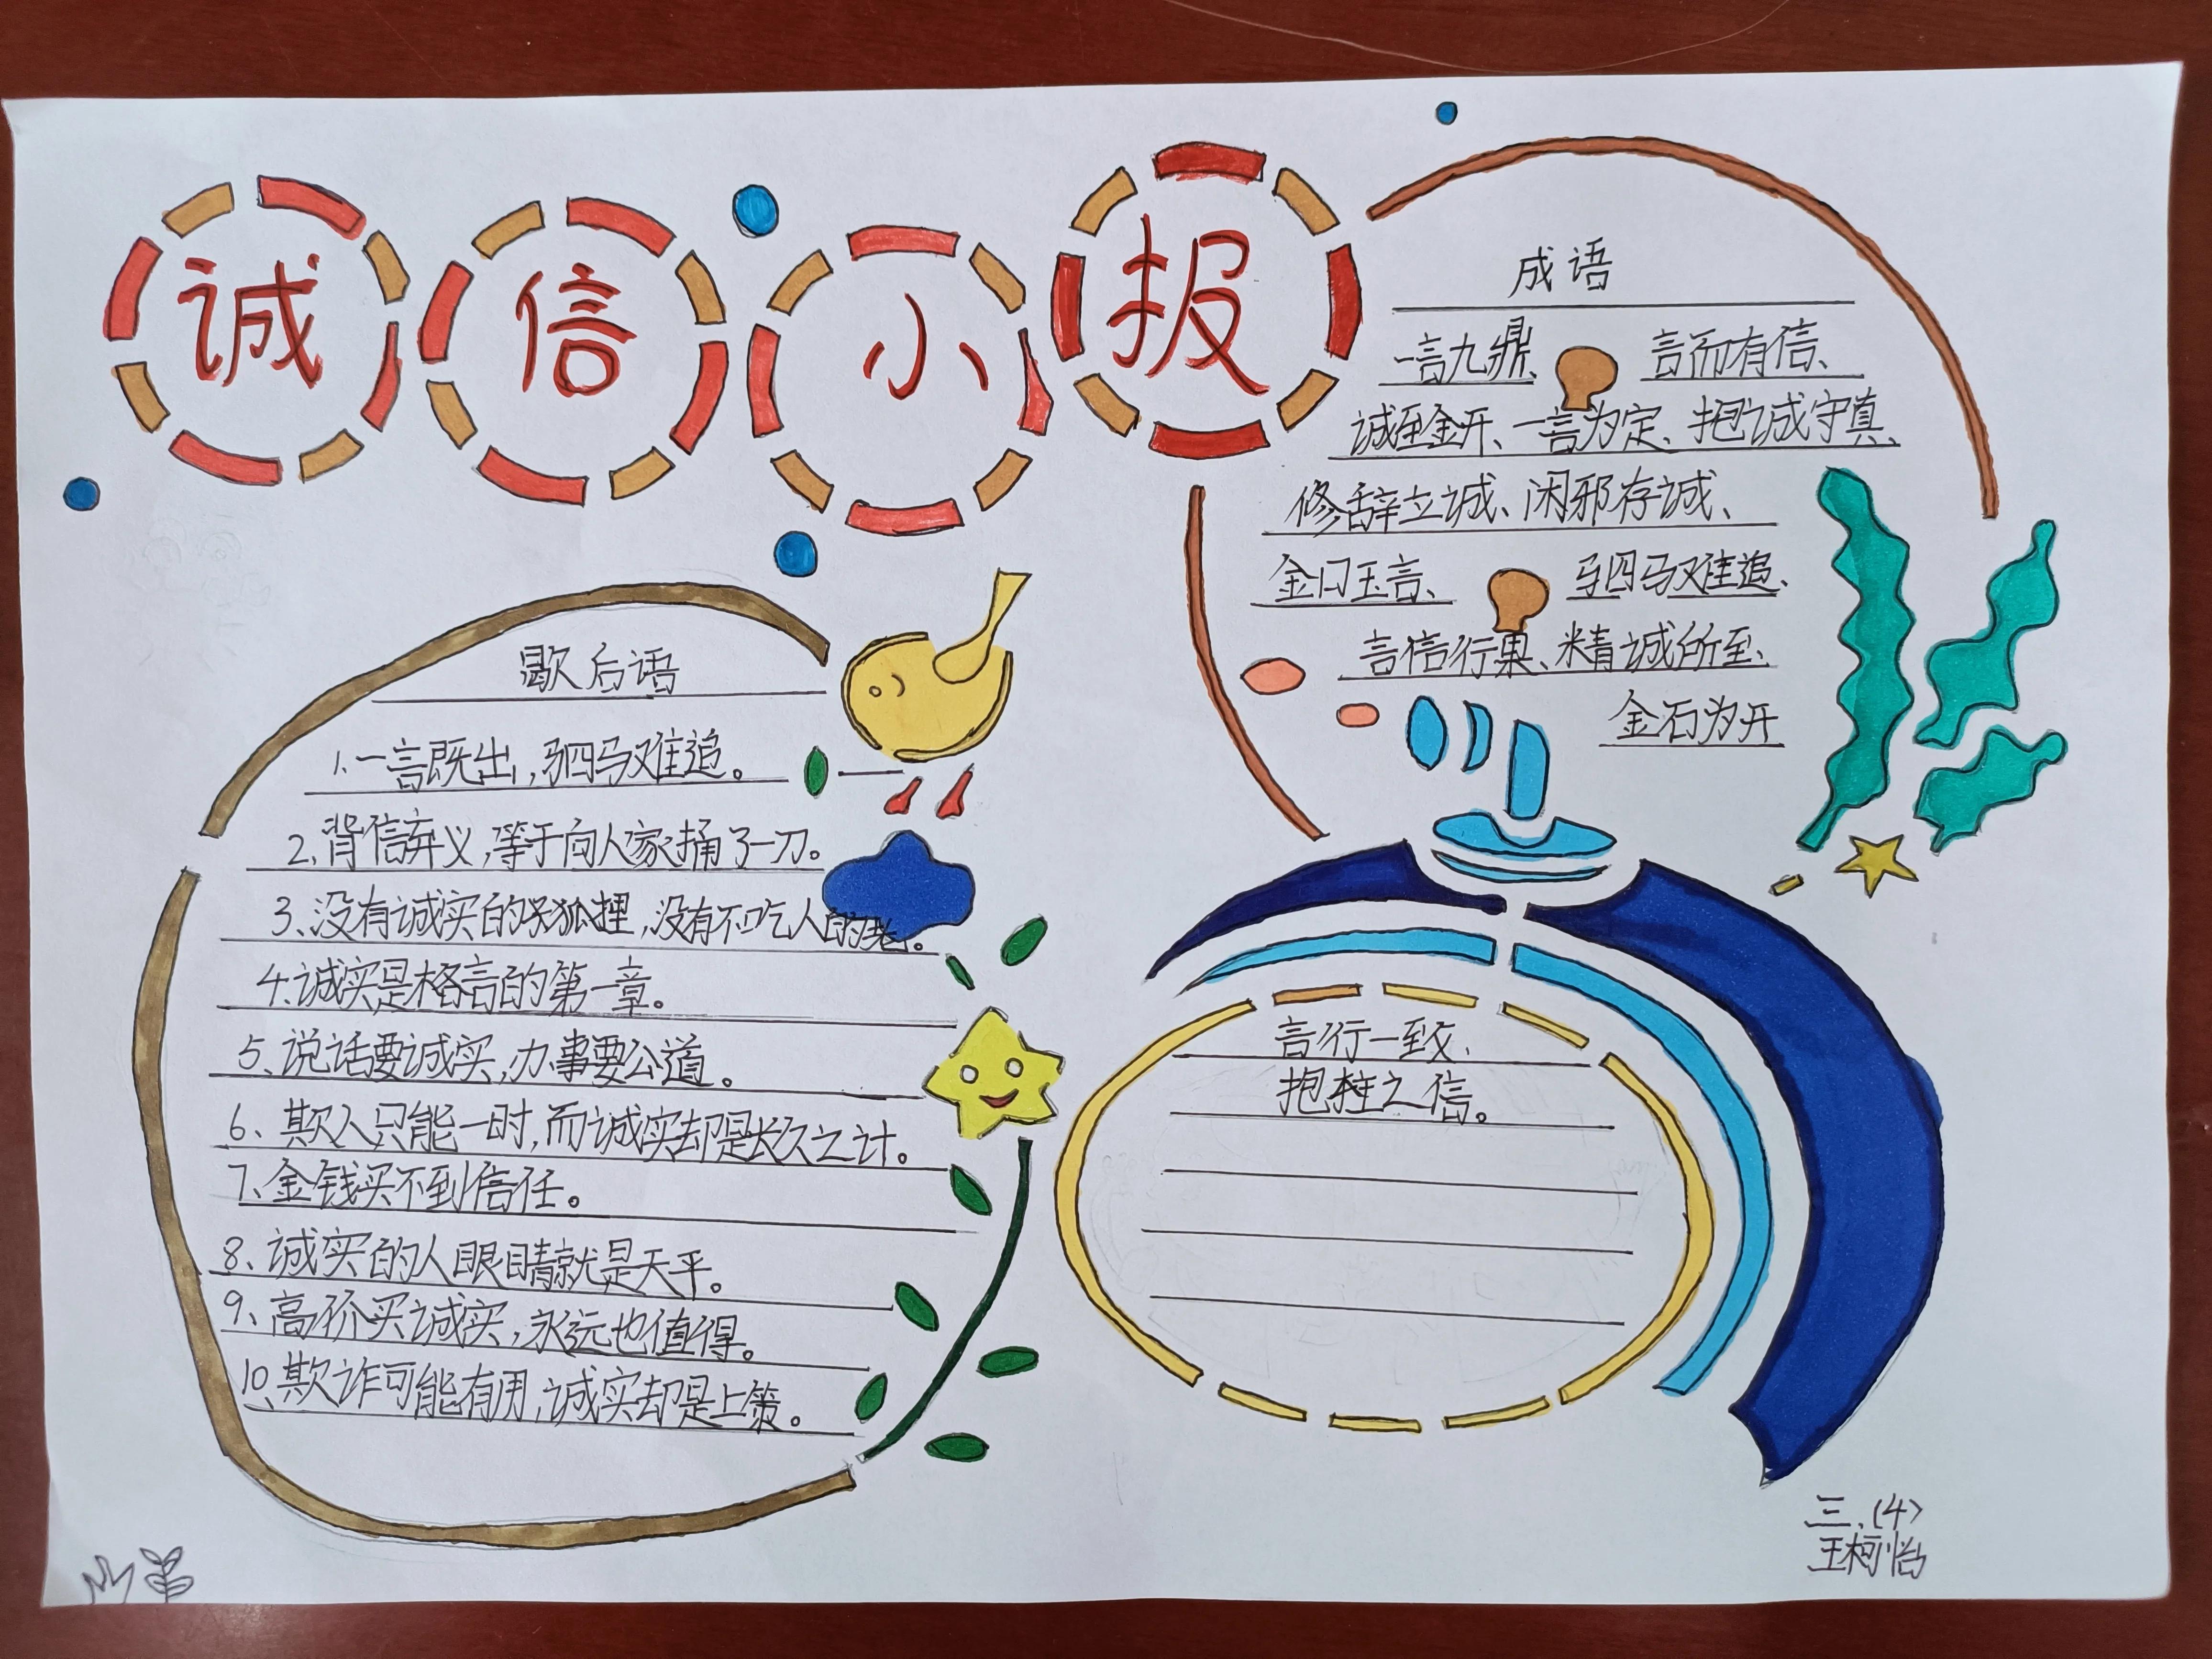 诚信小报
成语
一言九鼎、 言而有信、
诚至金开、一言为定、抱诚守真、
修辞立诚、闲邪存诚、
金口玉言、 驷马难追、
言信行果、精诚所至、
金石为开
歇后语
1.一言既出,驷马难追。
2、背信弃义,等于向人家捅了一刀。
3、没有诚实的狐狸,没有不吃人的老。
4.诚实是格言的第一章。
5、说话要诚实,办事要公道。
6、欺人只能一时,而诚实却是长久之计。
7、金钱买不到信任。
8、诚实的人眼睛就是天平。
9、高价买诚实,永远也值得。
10、欺诈可能有用,诚实却是上策。
言行一致、
抱柱之信。
三、(4)
王柯怡